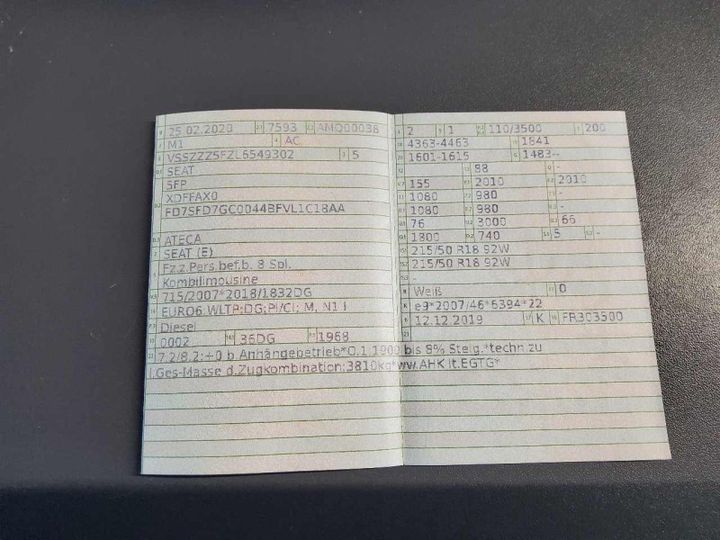 25.02.2020 7593 AMQ00036
M1 AC
VSSZZZ5FZL6549302 5
SEAT
5FP
XDFFAX0
FD7SFD7GC0044BFVL1C18AA
ATECA
SEAT (E)
Fz.z.Pers.bef.b. 8 Spl.
Kombilimousine
715/2007*2018/1832DG
EURO6 WLTP;DG;PI/CI; M, N1 I
Diesel
0002 36DG 1968
7.2/8.2:+0 b Anhängebetrieb*O.1:1900 bis 8% Steig.*techn zu
l.Ges-Masse d.Zugkombination:3810kg*ww.AHK lt.EGTG*
2 1 110/3500 200
4363-4463 1841
1601-1615 1483--
88 -
155 2010 2010
1080 980 -
1080 980 -
76 3000 66
1800 740 5 -
215/50 R18 92W
215/50 R18 92W
-
Weiß 0
e9*2007/46*6394*22
12.12.2019 K FR303500